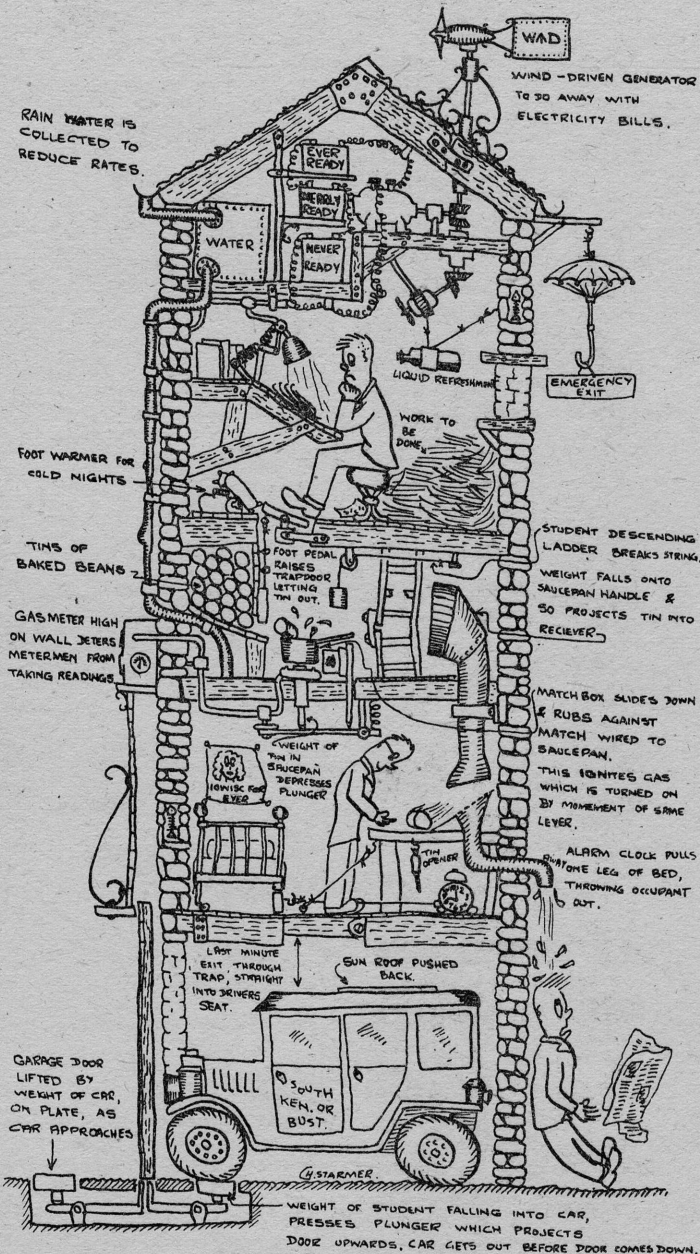 WIND
WIND-DRIVEN GENERATOR
TO DO AWAY WITH
ELECTRICITY BILLS.
RAIN WATER IS
COLLECTED TO
REDUCE RATES.
EVER
READY
MERRLY
READY
NEVER
READY
WATER
LIQUID REFRESHMENT
EMERGENCY
EXIT
WORK TO
BE
DONE
FOOT WARMER FOR
COLD NIGHTS
TINS OF
BAKED BEANS
FOOT PEDAL
RAISES
TRAPDOOR
LETTING
TIN OUT.
STUDENT DESCENDING
LADDER BREAKS STRING,
WEIGHT FALLS ONTO
SAUCEPAN HANDLE &
SO PROJECTS TIN INTO
RECIEVER
GAS METER HIGH
ON WALL DETERS
METERMEN FROM
TAKING READINGS
WEIGHT OF
TIN IN
SAUCEPAN
DEPRESSES
PLUNGER
MATCHBOX SLIDES DOWN
& RUBS AGAINST
MATCH WIRED TO
SAUCEPAN.
THIS IGNITES GAS
WHICH IS TURNED ON
BY MOMEMENT OF SAME
LEVER.
IOWISC FOR
EVER
TIN
OPENER
ALARM CLOCK PULLS
AWAY ONE LEG OF BED,
THROWING OCCUPANT
OUT.
LAST MINUTE
EXIT THROUGH
TRAP, STRAIGHT
INTO DRIVERS
SEAT.
SUN ROOF PUSHED
BACK.
SOUTH
KEN. OR
BUST.
GARAGE DOOR
LIFTED BY
WEIGHT OF CAR,
ON PLATE, AS
CAR APPROACHES
C.H.STARMER.
WEIGHT OF STUDENT FALLING INTO CAR,
PRESSES PLUNGER WHICH PROJECTS
DOOR UPWARDS. CAR GETS OUT BEFORE DOOR COMES DOWN